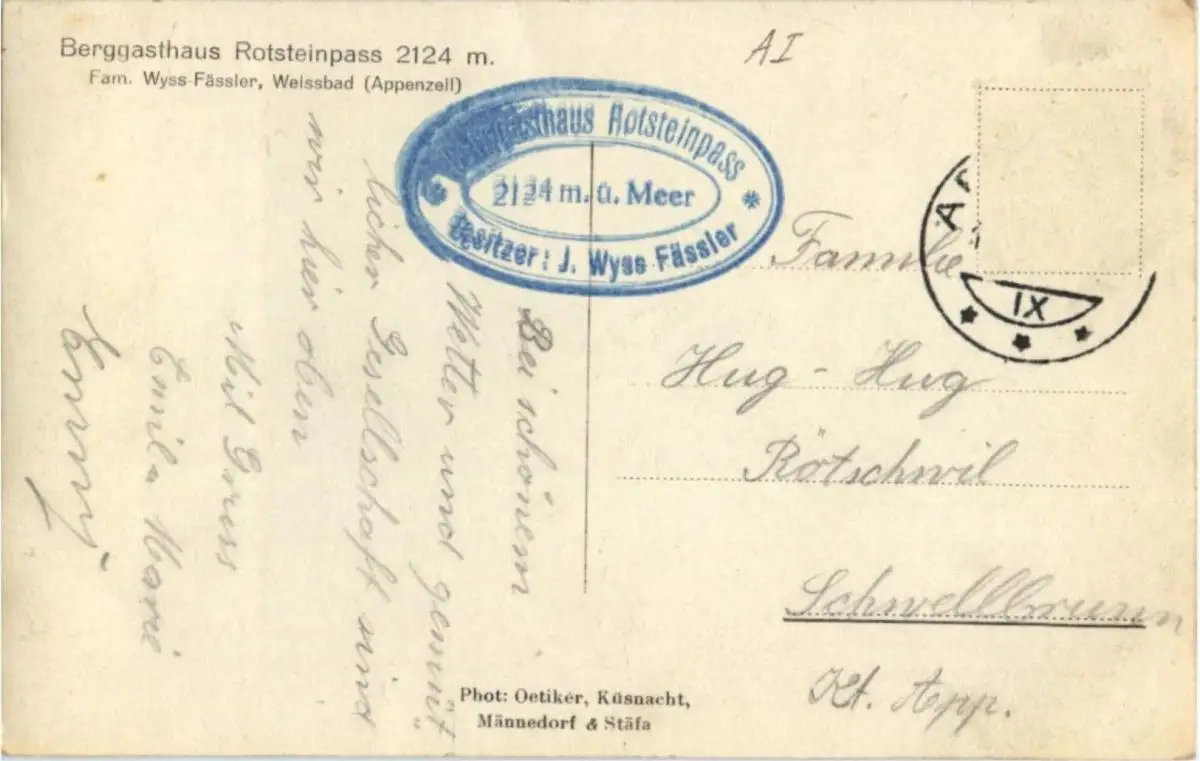 Berggasthaus Rotsteinpass 2124 m.
Fam. Wyss-Fässler, Weissbad (Appenzell)
AI
Berggasthaus Rotsteinpass
2124 m. ü. Meer
Besitzer: J. Wyss Fässler
IX
Bei schönem
Wetter und gemüt
licher Gesellschaft sind
wir hier oben
Mit Gruss
Emil u Marie
Familie
Hug - Hug
Rötschwil
Schwellbrunn
Kt. App.
Phot: Oetiker, Küsnacht,
Männedorf & Stäfa